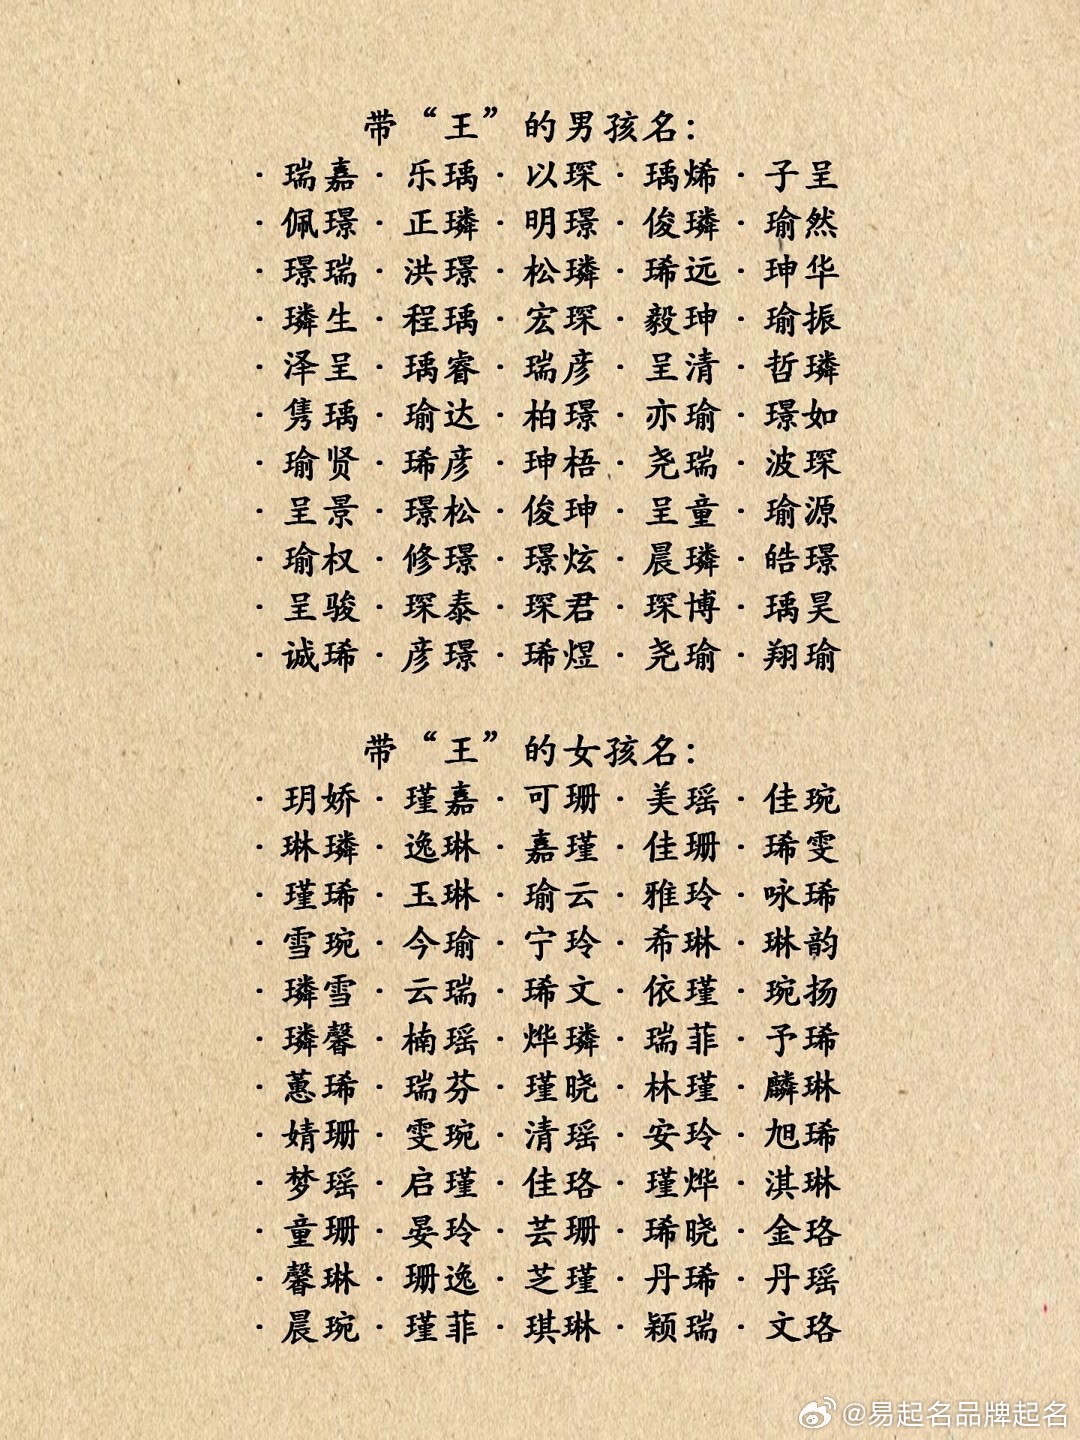 带“王”的男孩名：
·瑞嘉·乐瑀·以琛·瑀烯·子呈
·佩璟·正璘·明璟·俊璘·瑜然
·璟瑞·洪璟·松璘·琋远·珅华
·璘生·程瑀·宏琛·毅珅·瑜振
·泽呈·瑀睿·瑞彦·呈清·哲璘
·隽瑀·瑜达·柏璟·亦瑜·璟如
·瑜贤·琋彦·珅梧·尧瑞·波琛
·呈景·璟松·俊珅·呈童·瑜源
·瑜权·修璟·璟炫·晨璘·皓璟
·呈骏·琛泰·琛君·琛博·瑀昊
·诚琋·彦璟·琋煜·尧瑜·翔瑜
带“王”的女孩名：
·玥娇·瑾嘉·可珊·美瑶·佳琬
·琳璘·逸琳·嘉瑾·佳珊·琋雯
·瑾琋·玉琳·瑜云·雅玲·咏琋
·雪琬·今瑜·宁玲·希琳·琳韵
·璘雪·云瑞·琋文·依瑾·琬扬
·璘馨·楠瑶·烨璘·瑞菲·予琋
·蕙琋·瑞芬·瑾晓·林瑾·麟琳
·婧珊·雯琬·清瑶·安玲·旭琋
·梦瑶·启瑾·佳珞·瑾烨·淇琳
·童珊·晏玲·芸珊·琋晓·金珞
·馨琳·珊逸·芝瑾·丹琋·丹瑶
·晨琬·瑾菲·琪琳·颖瑞·文珞
@易起名品牌起名